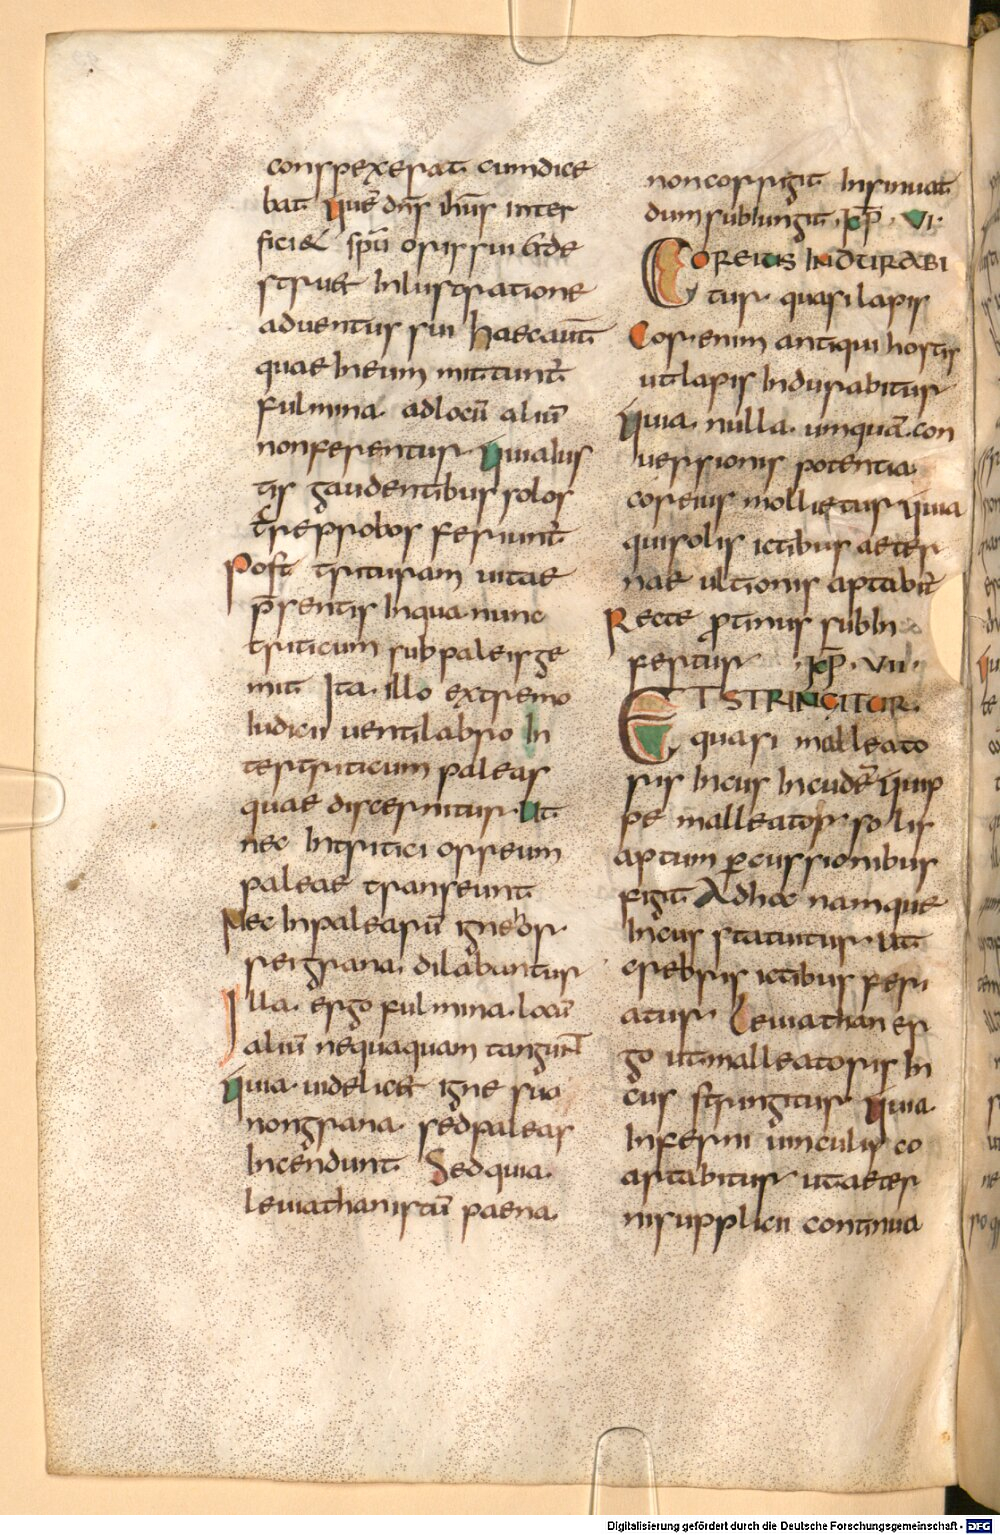 conspexerat cumdice
bat quē dn̄s ih̄us inter
ficiet sp̄u oris sui & de
struet inlustratione
aduentus sui haecaūt
quae ineum mittunt̄
fulmina adlocū aliū
nonferentur quialus
tis gaudentibus solos
reprobos feriunt̄
Post trituram uitae
p̄sentis inqua nunc
triticum subpaleis ge
mit Ita illo extremo
iudicii uentilabro in
tertriticum paleas
quae discernitur ut
nec intritici orreum
paleae transeunt
Nec inpalearū igne hor
rei grana dilabuntur
Illa ergo fulmina locū
aliū nequaquam tangunt̄
Quia uidelicet igne suo
nongrana sedpaleas
incendunt Sedquia
leuiathan istū paena
noncorrigit insinuat
dumsubiungit kp̄ VI
COR EIUS INDURABI
tur quasi lapis
Cor enim antiqui hostis
utlapis indurabitur
Quia nulla umquā con
uersionis potentia
cor eius mollietur quia
quisolis ictibus aeter
nae ultionis aptabit̄
Recte protinus subin
fertur kp̄ VII
ET STRINGITUR
quasi malleato
ris incus incudē quip
pe malleator solis
aptum percussionibus
figit Adhoc namque
incus statuitur ut
crebris ictibus feri
atur Leuiathan er
go utmalleatoris in
cus stringitur quia
inferni uinculis co
artabitur utaeter
nisupplicii continua
Digitalisierung gefördert durch die Deutsche Forschungsgemeinschaft - DFG